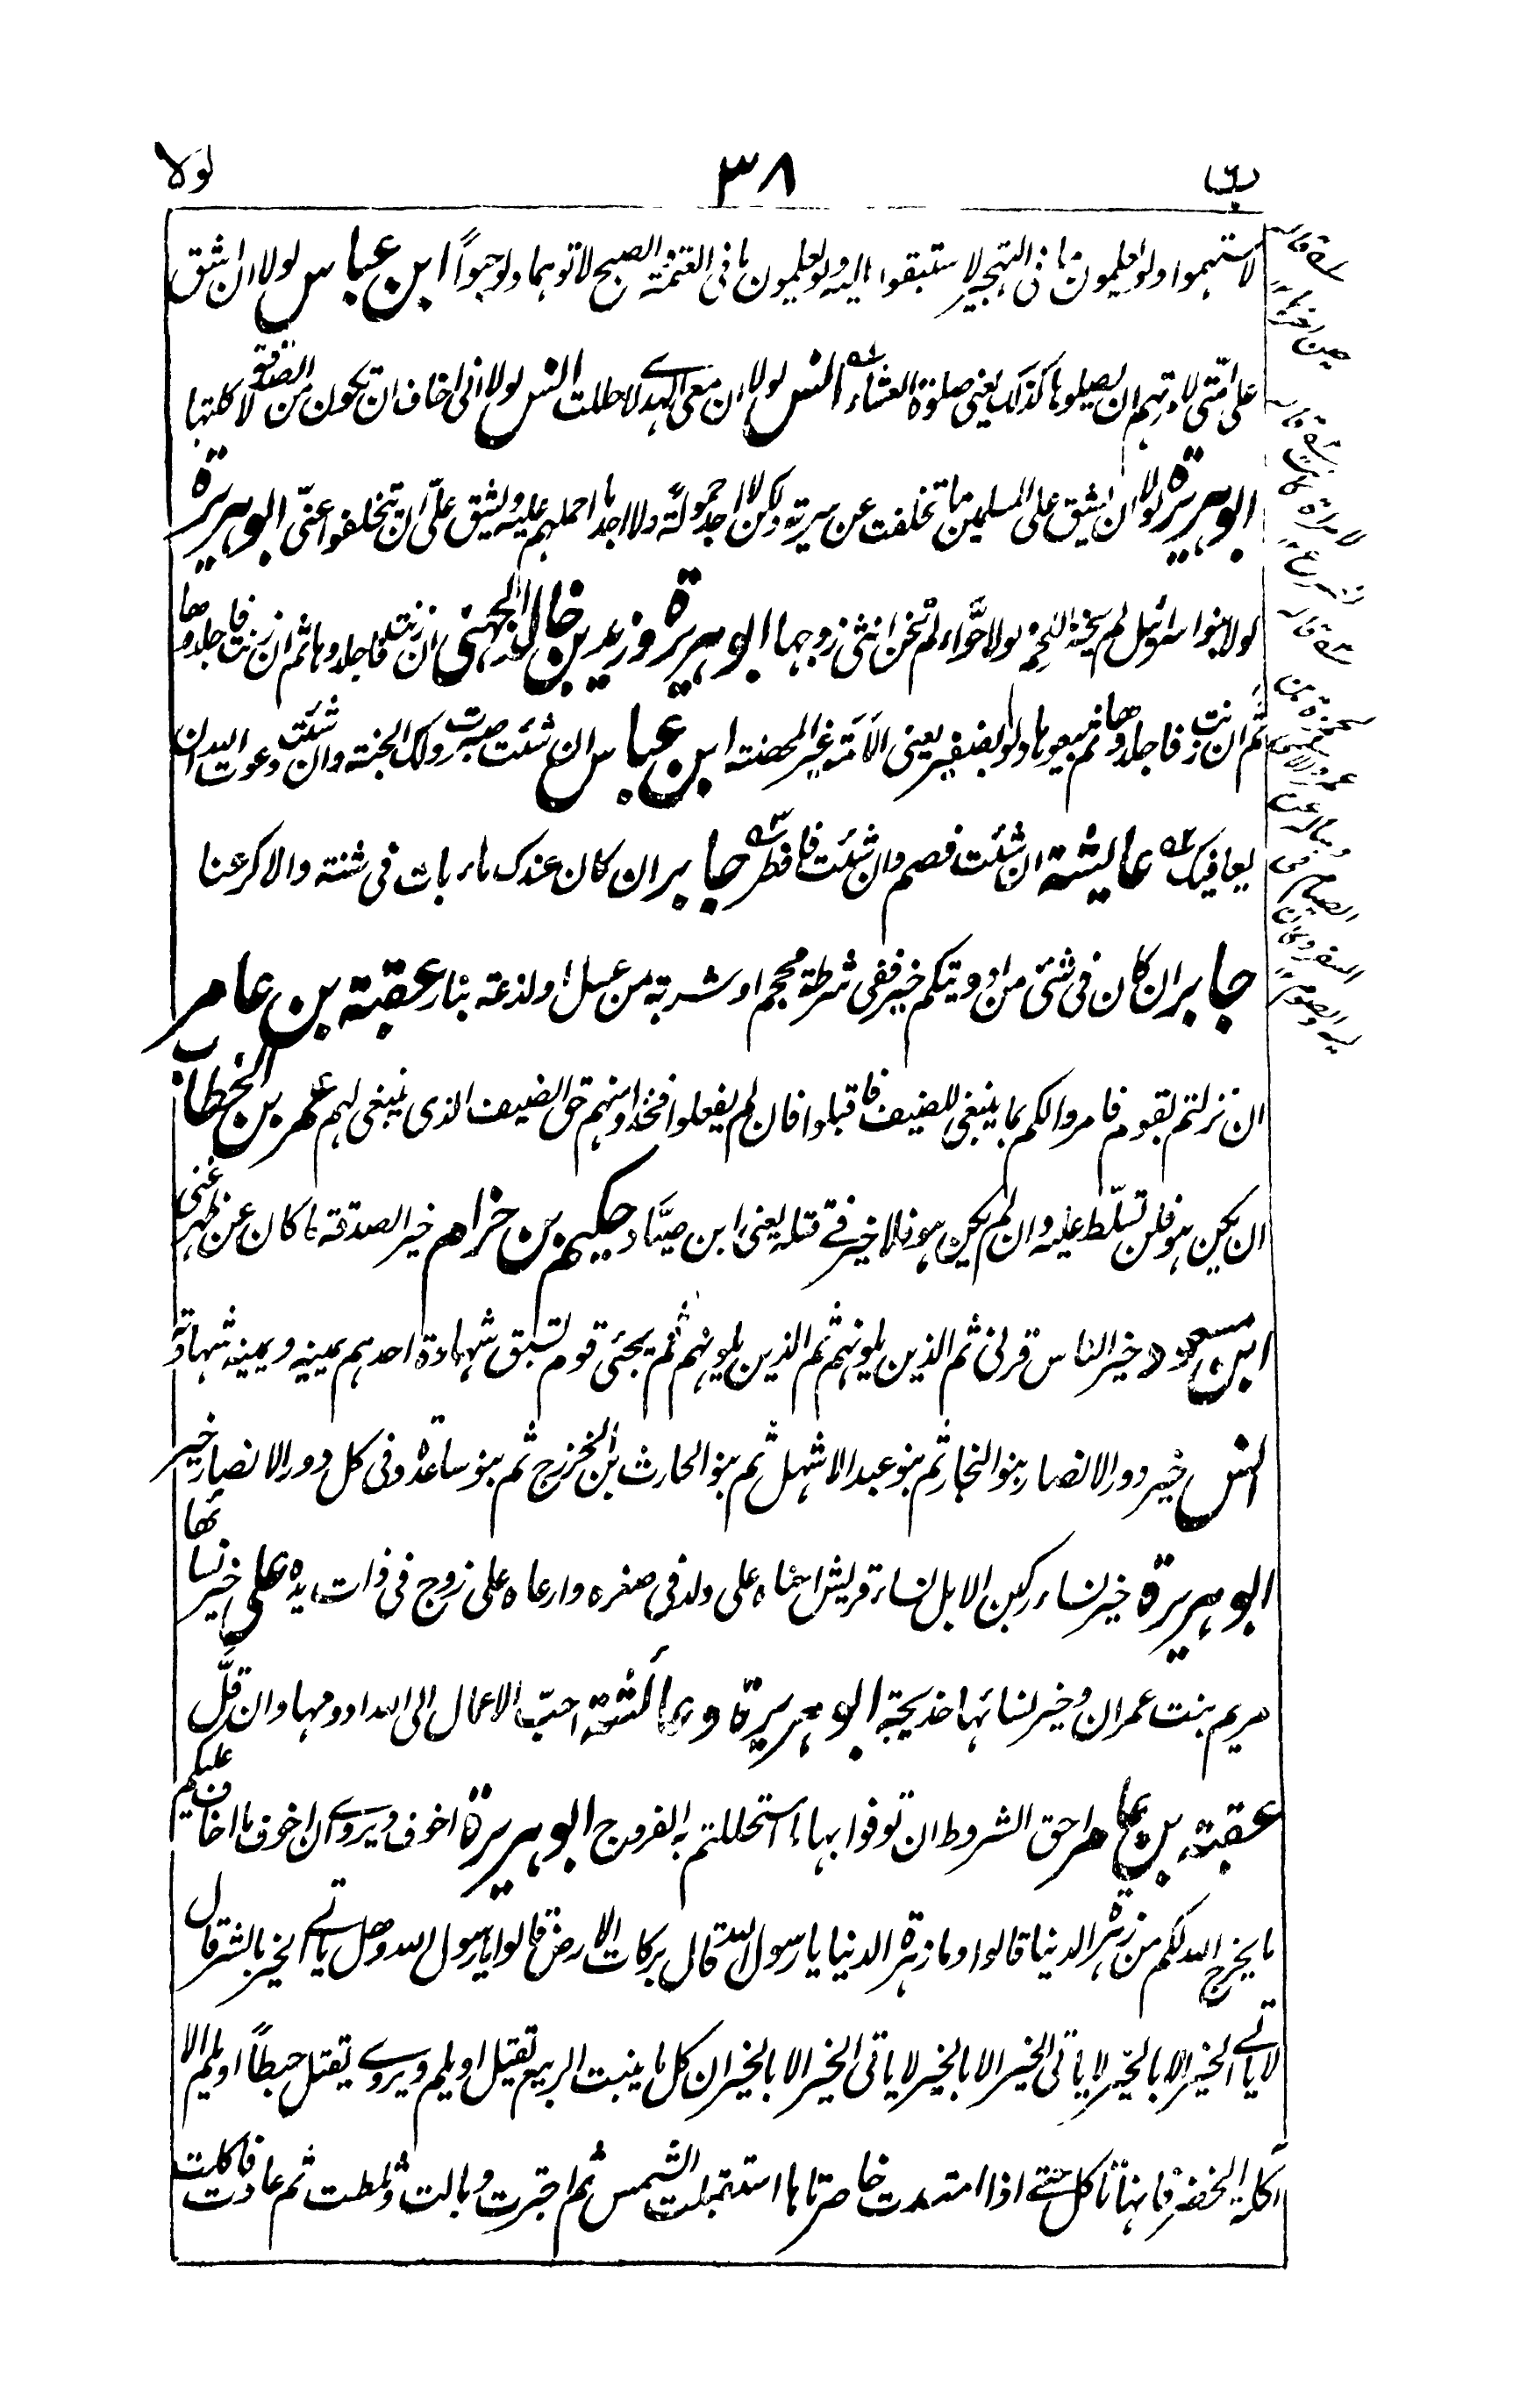 ب٦ ٣٨ لولا
لاستهموا ولو يعلمون ما فى التهجير لاستبقوا اليه ولو يعلمون ما فى العتمة والصبح لاتوهما ولو حبواً ابن عباس لولا ان اشق
على امتى لامرتهم ان يصلوها كذلك يعنى صلوة العشاء انس لولا ان معى الهدے لاحللت انس لولا انى اخاف ان تكون من الصدقة لاكلتها
ابو هريرة لولا ان اشق على المسلمين ما تخلفت عن سرية ولكن لا اجد حمولة ولا اجد ما احملهم عليه ويشق علىّ ان تخلفوا عنى ابو هريرة
لولا بنوا سرائيل لم يخنز اللحم ولولا حوّاء لم تخن انثى زوجها ابو هريرة وزيد بن خالد الجهنى ان زنت فاجلدوها ثم ان زنت فاجلدوها
ثم ان زنت فاجلدوها ثم بيعوها ولو بضفير يعنى الامة غير المحصنة ابن عباس ان شئت صبرت ولك الجنة وان شئت دعوت الله ان
يعافيك عايشة ان شئت فصم وان شئت فافطر جابر ان كان عندك ماء بات فى شنة والا كرعنا
جابر ان كان فى شئى من ادويتكم خير ففى شرطة محجم او شربة من عسل او لذعة بنار عقبة بن عامر
ان نزلتم بقوم فامروا لكم بما ينبغى للضيف فاقبلوا فان لم يفعلوا فخذوا منهم حق الضيف الذى ينبغى لهم عمر بن الخطاب
ان يكن هو فلن تسلّط عليه وان لم يكن هو فلا خير فے قتله يعنى ابن صيّاد حكيم بن حزام خير الصدقة ما كان عن ظهر غنى
ابن مسعود خير الناس قرنى ثم الذين يلونهم ثم الذين يلونهم ثم يجئى قوم تسبق شهادة احدهم يمينه ويمينه شهادته
انس خير دور الانصار بنو النجار ثم بنو عبد الاشهل ثم بنو الحارث بن الخزرج ثم بنو ساعدة وفى كل دور الانصار خير
ابو هريرة خير نساء ركبن الابل نساء قريش احناه على ولد فى صغره وارعاه على زوج فى ذات يده على خير نسائها
مريم بنت عمران وخير نسائها خديجة ابو هريرة وعائشة احبّ الاعمال الى الله ادومها وان قلّ
عقبة بن عامر احق الشروط ان توفوا بها ما استحللتم به الفروج ابو هريرة اخوف ويروے ان اخوف ما اخاف عليكم
ما يخرج الله لكم من زهرة الدنيا قالوا وما زهرة الدنيا يا رسول الله قال بركات الارض قالوا يا رسول الله وهل ياتے الخير بالشر قال
لا ياتے الخير الا بالخير لا ياتى الخير الا بالخير لا ياتى الخير الا بالخير ان كل ما ينبت الربيع يقتل او يلم ويروے يقتل حبطاً او يلم الا
آكلة الخضر فانها تاكل حتے اذا امتدت خاصرتاها استقبلت الشمس ثم اجترت وبالت وثلطت ثم عادت فاكلت